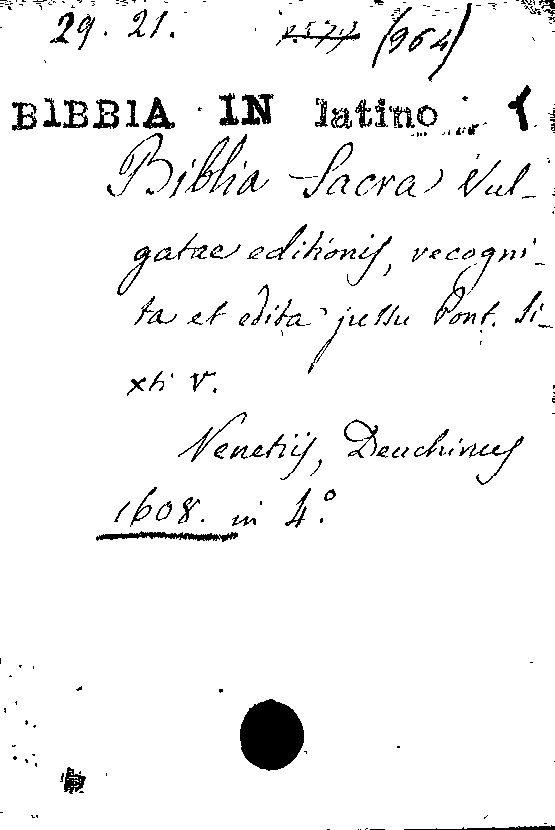 29. 21. (964)
BIBBIA IN latino 1
Biblia Sacra Vul-
gatae editionis, recogni-
ta et edita jussu Pont. Si-
xti V.
Venetiis, Deuchinus
1608. in 4.º